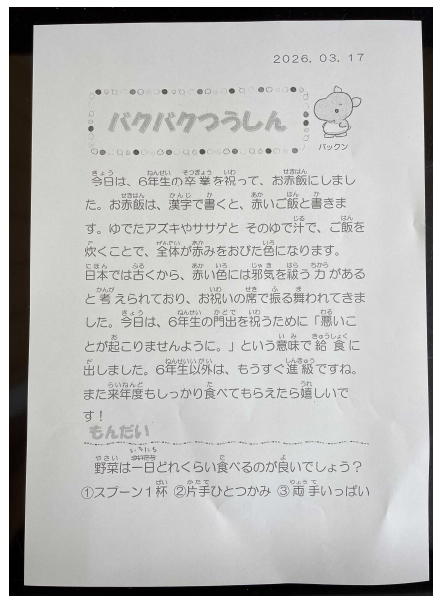 2026. 03. 17
バクバクつうしん
バックン
今日は、6年生の卒業を祝って、お赤飯にしまし
た。お赤飯は、漢字で書くと、赤いご飯と書きま
す。ゆでたアズキやササゲと そのゆで汁で、ご飯を
炊くことで、全体が赤みをおびた色になります。
日本では古くから、赤い色には邪気を祓う力がある
と考えられており、お祝いの席で振る舞われてきま
した。今日は、6年生の門出を祝うために「悪いこ
とが起こりませんように。」という意味で給食に
出しました。6年生以外は、もうすぐ進級ですね。
また来年度もしっかり食べてもらえたら嬉しいで
す！
もんだい
野菜は一日どれくらい食べるのが良いでしょう？
①スプーン1杯 ②片手ひとつかみ ③両手いっぱい